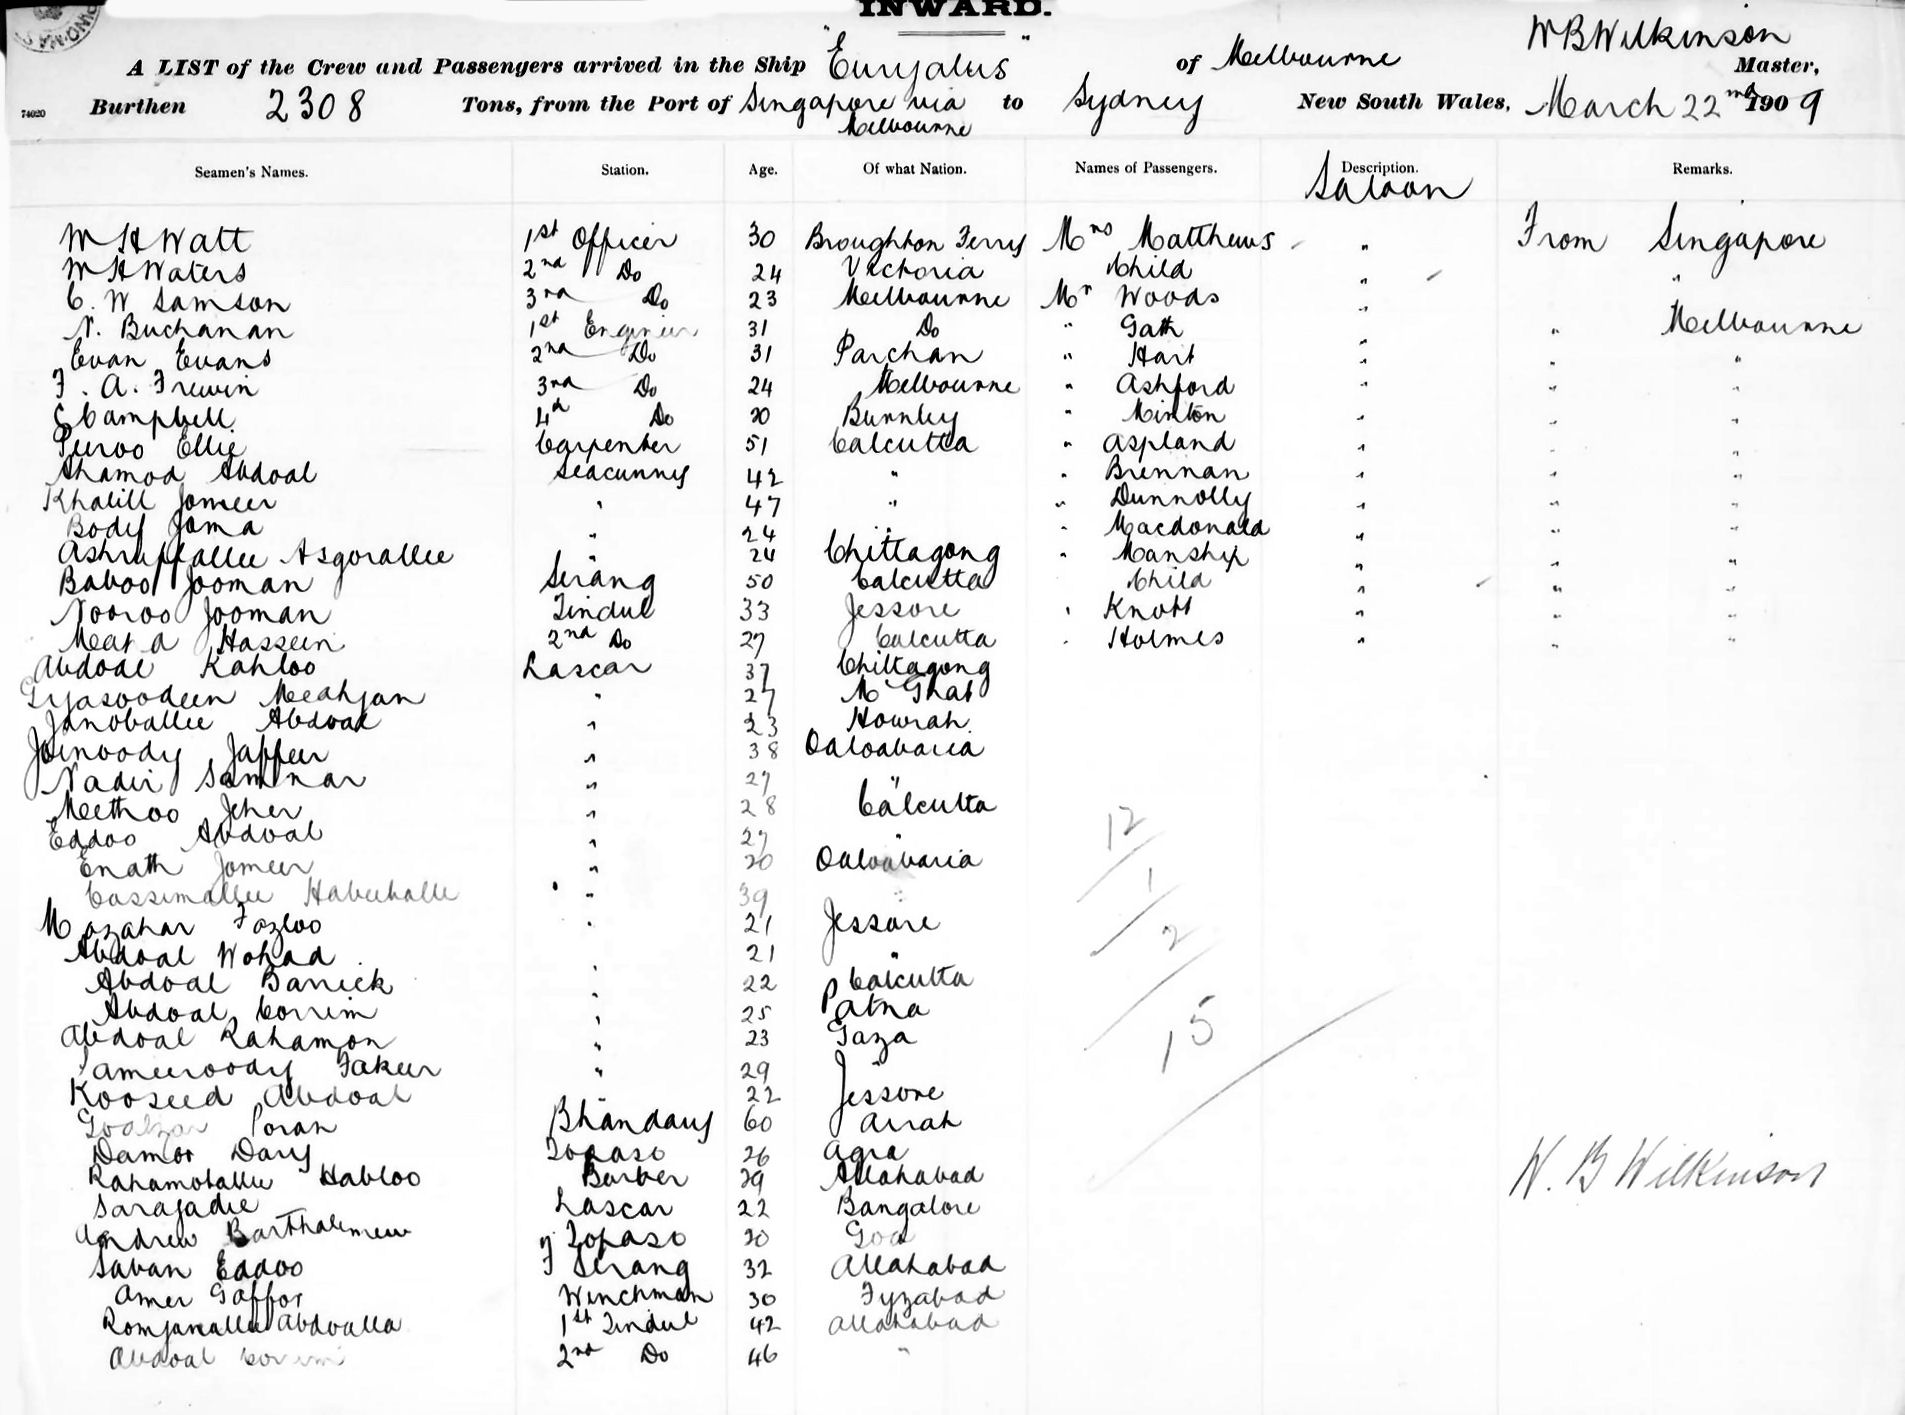 INWARD.
A LIST of the Crew and Passengers arrived in the Ship "Euryalus" of Melbourne W B Wilkinson Master,
Burthen 2308 Tons, from the Port of Singapore via Melbourne to Sydney New South Wales, March 22nd 1909
74020
Seamen's Names. Station. Age. Of what Nation. Names of Passengers. Description. Remarks.
Saloon
W H Watt 1st Officer 30 Broughton Ferry Mrs Matthews " From Singapore
W H Waters 2nd Do 24 Victoria Child " "
C. W Samson 3rd Do 23 Melbourne Mr Woods "
N. Buchanan 1st Engineer 31 Do " Gath " " Melbourne
Evan Evans 2nd Do 31 Parchan " Hart " " "
F. A. Frewin 3rd Do 24 Melbourne " Ashford " " "
C Campbell 4th Do 20 Burnley " Minton " " "
Puroo Ellie Carpenter 51 Calcutta " Aspland " " "
Ahamod Abdoal Seacunny 42 " " Brennan " " "
Khalill Jomeer " 47 " " Dunnolly " " "
Body Joma " 24 " " Macdonald " " "
Ashruffallee Asgorallee " 24 Chittagong " Manship " " "
Baboo Jooman Serang 50 Calcutta Child " " "
Nooroo Jooman Tindul 33 Jessore " Knott " " "
Hassein 2nd Do 27 Calcutta " Holmes " " "
Abdoal Kahloo Lascar 37 Chittagong
Gyasoodeen Meahjan " 27 M Ghat
Janoballee Abdoal " 23 Howrah
Joinoody Jaffer " 38 Oaloabaria
Nadir Sammar " 27 "
Meethoo Jeher " 28 Calcutta
Eddoo Abdoal " 27 "
Enath Jomeer " 20 Oaloabaria
Cassimallee " 39 "
Mozahar Fozloo " 21 Jessore
Abdoal Wohad 21 "
Abdoal Barrick " 22 Calcutta
Abdoal Corrim " 25 Patna
Abdoal Rahamon " 23 Gaza
Fakeer " 29 "
Kooseed Abdoal " 22 Jessore
Poran Bhandary 60 Arrah
Damor Dary Topaso 26 Agra
Rahamotallee Habloo Barber 29 Allahabad
Sarafadie Lascar 22 Bangalore
Andrew Barthalimew Topaso 20 Goa
Saban Eddoo F Serang 32 Allahabad
Amer Goffor Winchman 30 Fyzabad
Romjanallee Abdoalla 1st Tindul 42 Allahabad
Abdoal Corrim 2nd Do 46 "
12
1
2
15
W. B Wilkinson